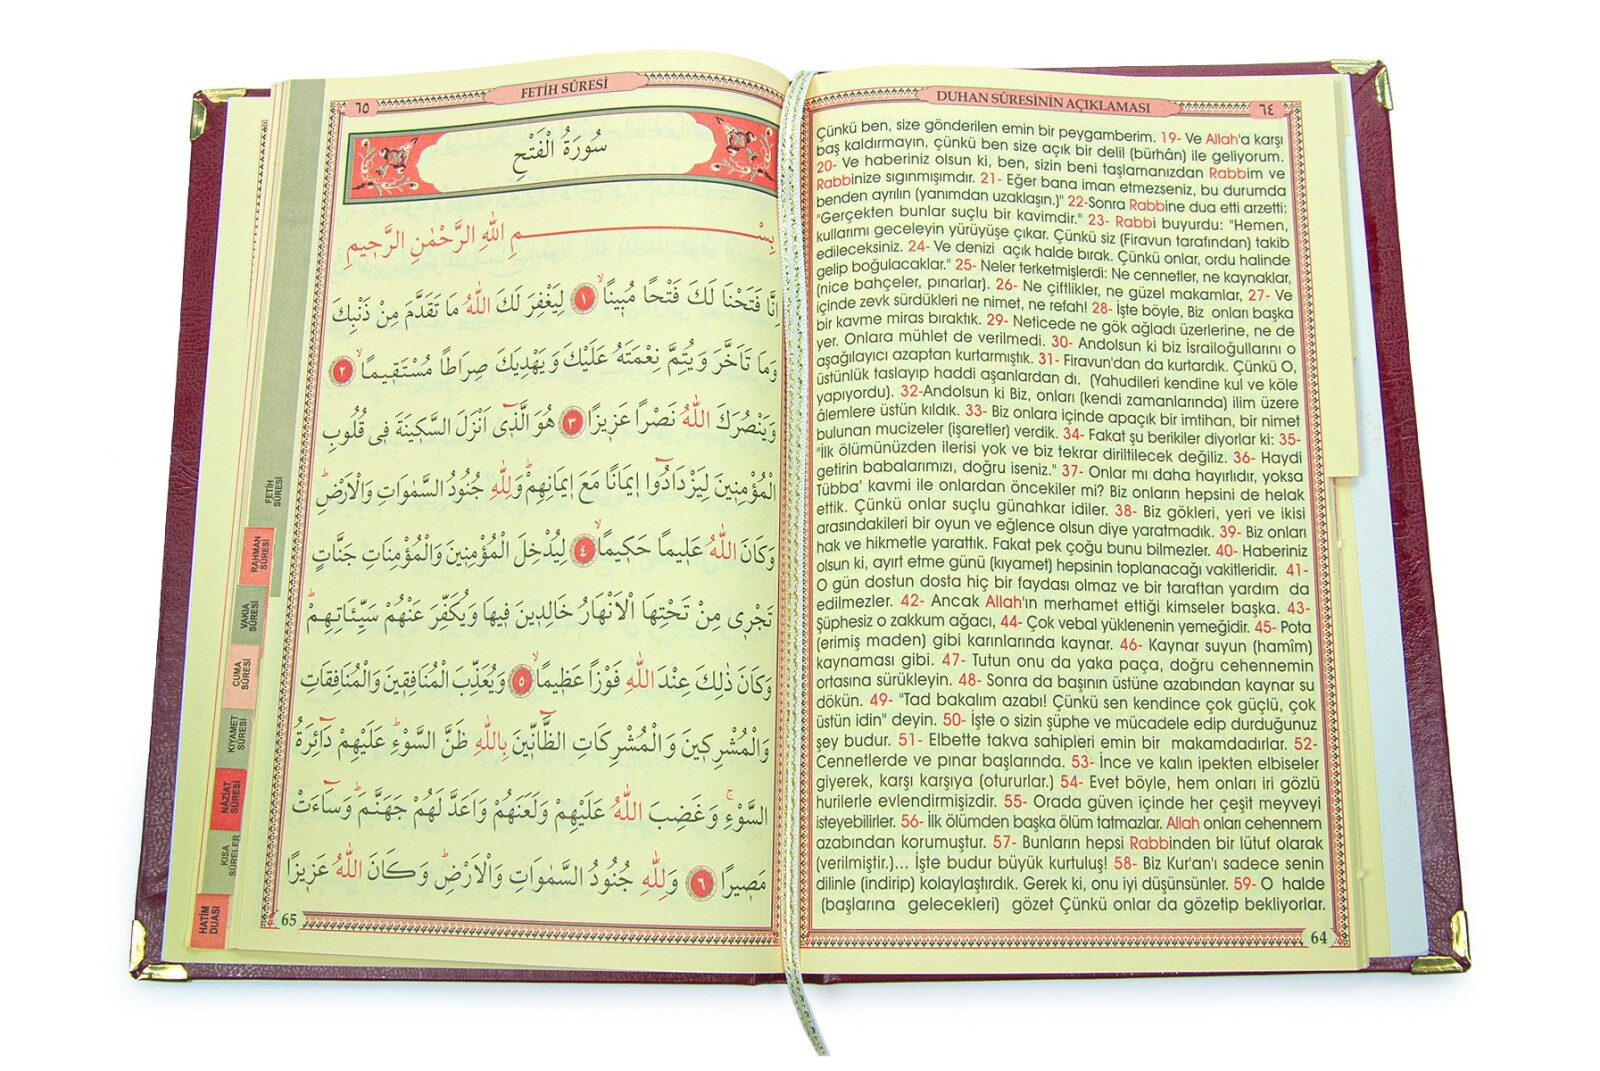 DUHAN SÛRESİNİN AÇIKLAMASI
٦٤
Çünkü ben, size gönderilen emin bir peygamberim. 19- Ve Allah'a karşı
baş kaldırmayın, çünkü ben size açık bir delil (bürhân) ile geliyorum.
20- Ve haberiniz olsun ki, ben, sizin beni taşlamanızdan Rabbim ve
Rabbinize sıgınmışımdır. 21- Eğer bana iman etmezseniz, bu durumda
benden ayrılın (yanımdan uzaklaşın.)" 22-Sonra Rabbine dua etti arzetti:
"Gerçekten bunlar suçlu bir kavimdir." 23- Rabbi buyurdu: "Hemen,
kullarımı geceleyin yürüyüşe çıkar. Çünkü siz (Firavun tarafından) takib
edileceksiniz. 24- Ve denizi açık halde bırak. Çünkü onlar, ordu halinde
gelip boğulacaklar." 25- Neler terketmişlerdi: Ne cennetler, ne kaynaklar,
(nice bahçeler, pınarlar). 26- Ne çiftlikler, ne güzel makamlar, 27- Ve
içinde zevk sürdükleri ne nimet, ne refah! 28- İşte böyle, Biz onları başka
bir kavme miras bıraktık. 29- Neticede ne gök ağladı üzerlerine, ne de
yer. Onlara mühlet de verilmedi. 30- Andolsun ki biz İsrailoğullarını o
aşağılayıcı azaptan kurtarmıştık. 31- Firavun'dan da kurtardık. Çünkü O,
üstünlük taslayıp haddi aşanlardan dı. (Yahudileri kendine kul ve köle
yapıyordu). 32-Andolsun ki Biz, onları (kendi zamanlarında) ilim üzere
âlemlere üstün kıldık. 33- Biz onlara içinde apaçık bir imtihan, bir nimet
bulunan mucizeler (işaretler) verdik. 34- Fakat şu berikiler diyorlar ki: 35-
"İlk ölümünüzden ilerisi yok ve biz tekrar diriltilecek değiliz. 36- Haydi
getirin babalarımızı, doğru iseniz." 37- Onlar mı daha hayırlıdır, yoksa
Tübba' kavmi ile onlardan öncekiler mi? Biz onların hepsini de helak
ettik. Çünkü onlar suçlu günahkar idiler. 38- Biz gökleri, yeri ve ikisi
arasındakileri bir oyun ve eğlence olsun diye yaratmadık. 39- Biz onları
hak ve hikmetle yarattık. Fakat pek çoğu bunu bilmezler. 40- Haberiniz
olsun ki, ayırt etme günü (kıyamet) hepsinin toplanacağı vakitleridir. 41-
O gün dostun dosta hiç bir faydası olmaz ve bir taraftan yardım da
edilmezler. 42- Ancak Allah'ın merhamet ettiği kimseler başka. 43-
Şüphesiz o zakkum ağacı, 44- Çok vebal yüklenenin yemeğidir. 45- Pota
(erimiş maden) gibi karınlarında kaynar. 46- Kaynar suyun (hamîm)
kaynaması gibi. 47- Tutun onu da yaka paça, doğru cehennemin
ortasına sürükleyin. 48- Sonra da başının üstüne azabından kaynar su
dökün. 49- "Tad bakalım azabı! Çünkü sen kendince çok güçlü, çok
üstün idin" deyin. 50- İşte o sizin şüphe ve mücadele edip durduğunuz
şey budur. 51- Elbette takva sahipleri emin bir makamdadırlar. 52-
Cennetlerde ve pınar başlarında. 53- İnce ve kalın ipekten elbiseler
giyerek, karşı karşıya (otururlar.) 54- Evet böyle, hem onları iri gözlü
hurilerle evlendirmişizdir. 55- Orada güven içinde her çeşit meyveyi
isteyebilirler. 56- İlk ölümden başka ölüm tatmazlar. Allah onları cehennem
azabından korumuştur. 57- Bunların hepsi Rabbinden bir lütuf olarak
(verilmiştir.)... İşte budur büyük kurtuluş! 58- Biz Kur'an'ı sadece senin
dilinle (indirip) kolaylaştırdık. Gerek ki, onu iyi düşünsünler. 59- O halde
(başlarına gelecekleri) gözet Çünkü onlar da gözetip bekliyorlar.
64
FETİH SÛRESİ
٦٥
سُورَةُ الْفَتْحِ
بِسْمِ اللهِ الرَّحْمٰنِ الرَّحِيمِ
اِنَّا فَتَحْنَا لَكَ فَتْحًا مُبِينًاۙ ١ لِيَغْفِرَ لَكَ اللهُ مَا تَقَدَّمَ مِنْ ذَنْبِكَ
وَمَا تَاَخَّرَ وَيُتِمَّ نِعْمَتَهُ عَلَيْكَ وَيَهْدِيَكَ صِرَاطًا مُسْتَقِيمًاۙ ٢
وَيَنْصُرَكَ اللهُ نَصْرًا عَزِيزًا ٣ هُوَ الَّذِٓي اَنْزَلَ السَّكِينَةَ فِي قُلُوبِ
الْمُؤْمِنِينَ لِيَزْدَادُٓوا اِيمَانًا مَعَ اِيمَانِهِمْۜ وَلِلهِ جُنُودُ السَّمٰوَاتِ وَالْاَرْضِۜ
وَكَانَ اللهُ عَلِيمًا حَكِيمًاۙ ٤ لِيُدْخِلَ الْمُؤْمِنِينَ وَالْمُؤْمِنَاتِ جَنَّاتٍ
تَجْرِي مِنْ تَحْتِهَا الْاَنْهَارُ خَالِدِينَ فِيهَا وَيُكَفِّرَ عَنْهُمْ سَيِّـَٔاتِهِمْۜ
وَكَانَ ذٰلِكَ عِنْدَ اللهِ فَوْزًا عَظِيمًاۙ ٥ وَيُعَذِّبَ الْمُنَافِقِينَ وَالْمُنَافِقَاتِ
وَالْمُشْرِكِينَ وَالْمُشْرِكَاتِ الظَّٓانِّينَ بِاللهِ ظَنَّ السَّوْءِۜ عَلَيْهِمْ دَٓائِرَةُ
السَّوْءِۚ وَغَضِبَ اللهُ عَلَيْهِمْ وَلَعَنَهُمْ وَاَعَدَّ لَهُمْ جَهَنَّمَۜ وَسَٓاءَتْ
مَصِيرًا ٦ وَلِلهِ جُنُودُ السَّمٰوَاتِ وَالْاَرْضِۜ وَكَانَ اللهُ عَزِيزًا
65
FETİH
SÛRESİ
RAHMAN
SÛRESİ
VAKIA
SÛRESİ
CUMA
SÛRESİ
KIYAMET
SÛRESİ
NÂZİAT
SÛRESİ
KISA
SÛRELER
HATİM
DUASI